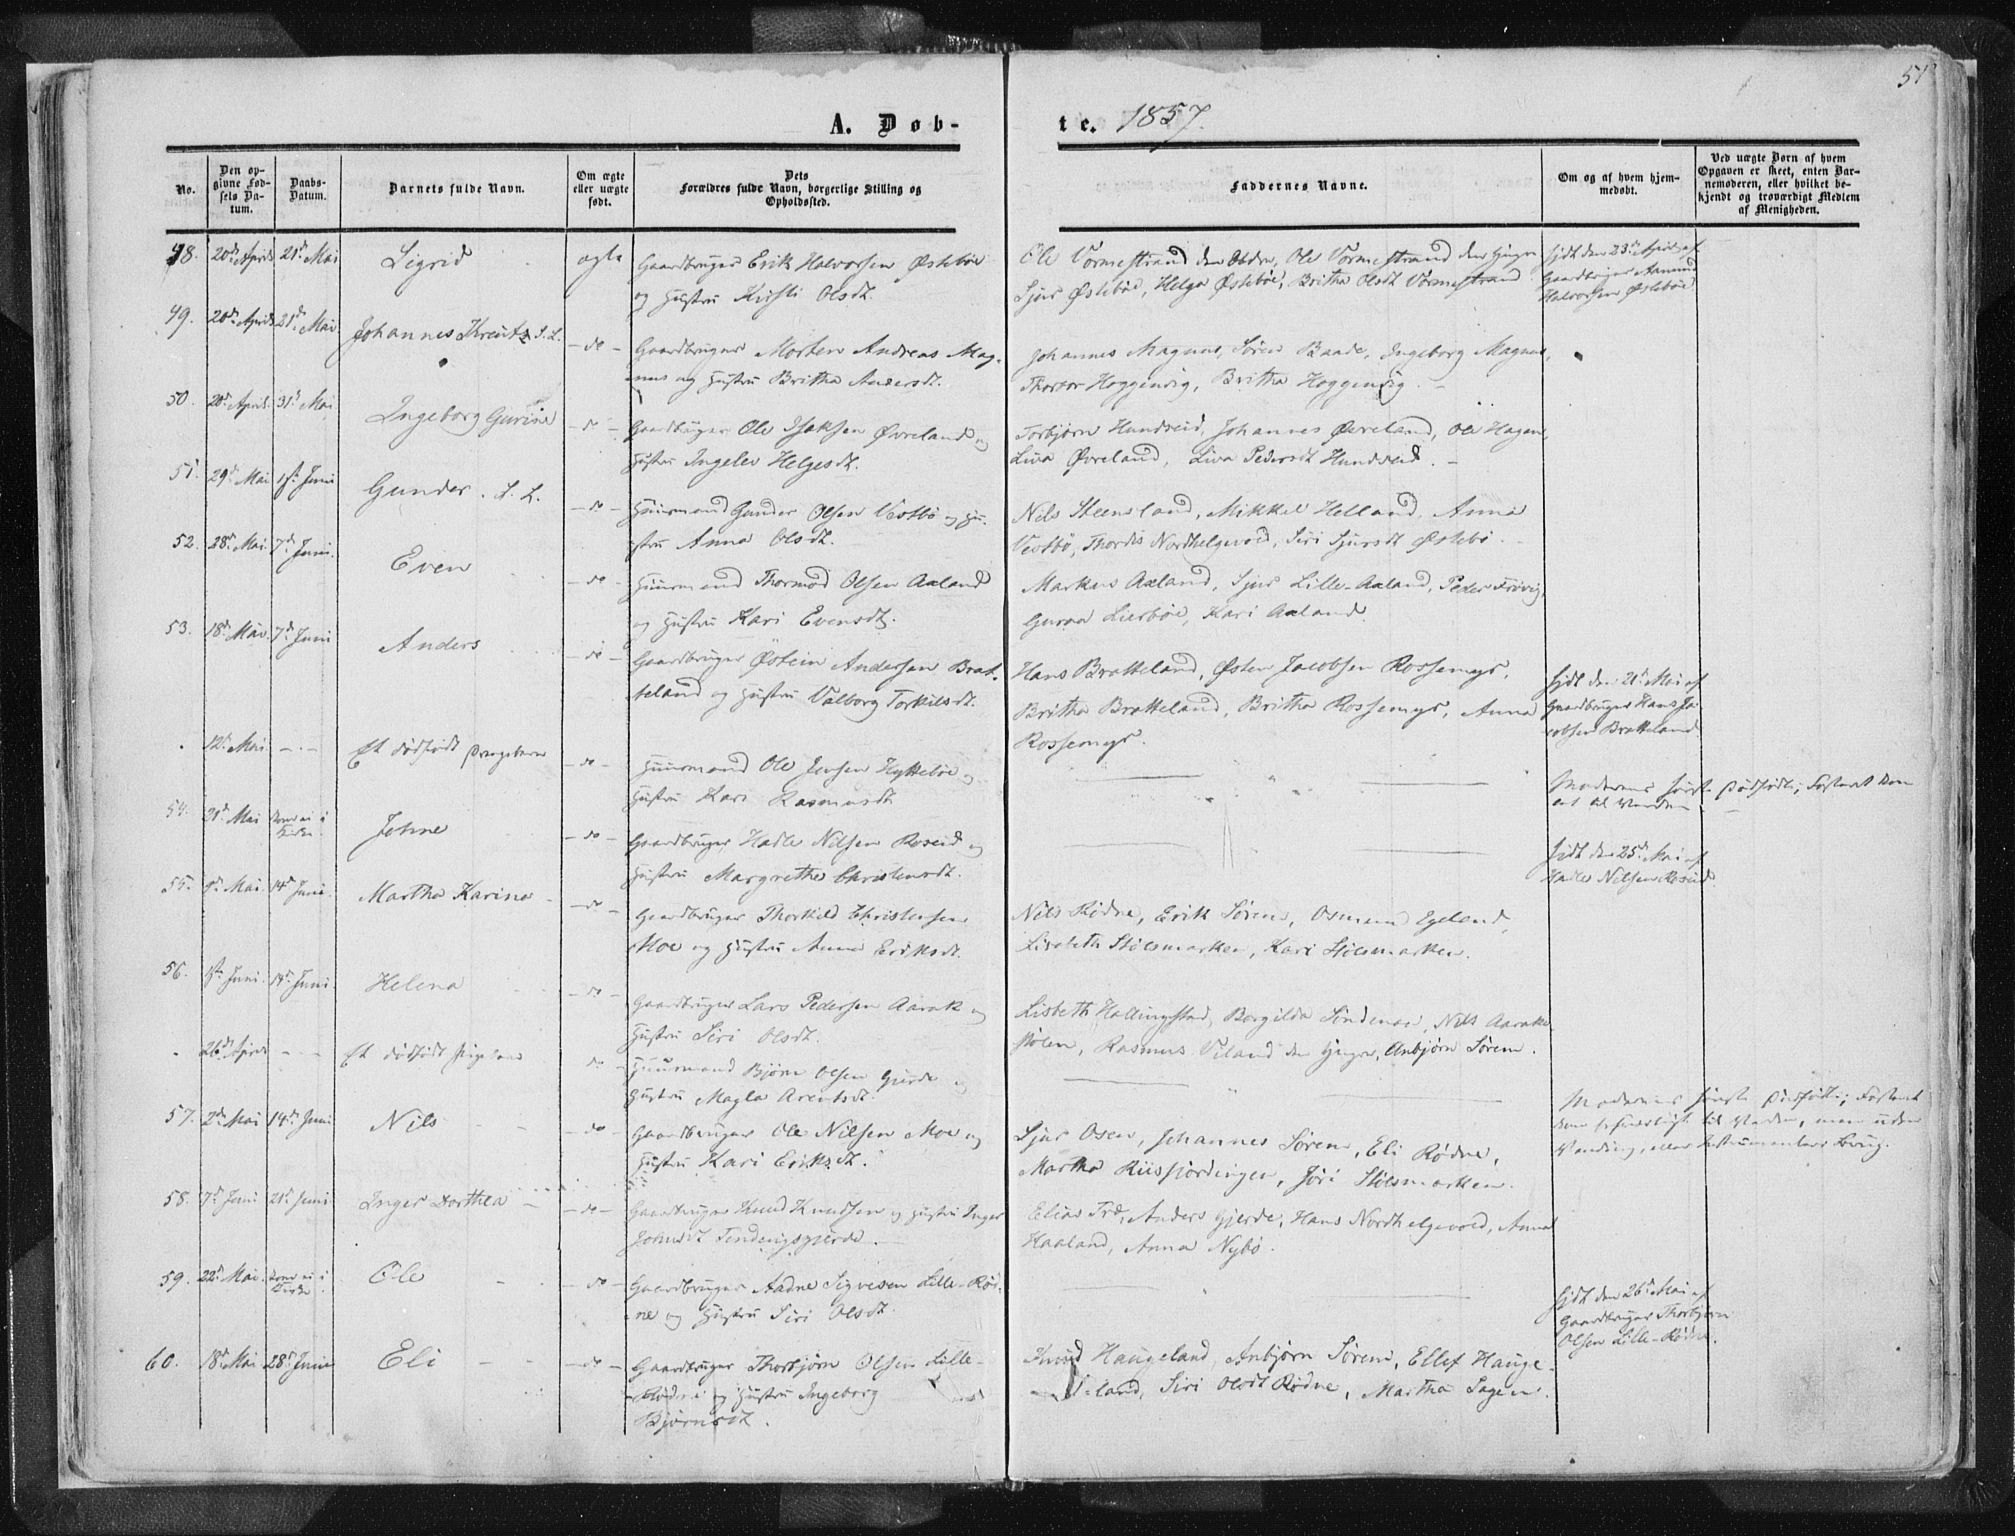 51
A. Døb-
te. 1857.
No.
Den op-
givne Fød-
sels Da-
tum.
Daabs-
Datum.
Barnets fulde Navn.
Om ægte
eller uægte
født.
Dets
Forældres fulde Navn, borgerlige Stilling og
Opholdssted.
Faddernes Navne.
Om og af hvem hjem-
medøbt.
Ved uægte Børn af hvem
Opgaven er skeet, enten Bar-
nemoderen, eller hvilket be-
kjendt og troværdigt Medlem
af Menigheden.
48. 20de April 21de Mai Sigrid ægte Gaardbruger Erik Halvorsen Østebøe
og Hustru Kirsti Olsdt.
Ole Vormestrand den Ældre, Ole Vormestrand den Yngre
Sjur Østebøe, Helga Østebøe, Britha Olsdt Vormestrand
Hjdt den 23de April af
Gaardbruger Aamund
Halvorsen Østebøe
49. 20de April 21de Mai Johannes Kreutz S. L. - do - Gaardbruger Morten Andreas Mag-
nus og Hustru Britha Andersdt.
Johannes Magnus, Søren Baade, Ingeborg Magnus,
Thorvor Hoggenvig, Britha Hoggenvig. -
50. 20de April 31te Mai Ingeborg Gurine - do - Gaardbruger Ole Isaksen Øvreland og
Hustru Ingelev Helgesdt.
Torbjørn Hundseid, Johannes Øvreland, Ole Hagen,
Liva Øvreland, Liva Pedersdt Hundseid. -
51. 29de Mai 1ste Juni Gunder. S. L. - do - Huusmand Gunder Olsen Vestbø og Hu-
stru Anna Olsdt.
Nils Steensland, Mikkel Helland, Anna
Vestbø, Thordis Nordhelgevold, Siri Sjursdt Østebø. -
52. 28de Mai 7de Juni. Even - do - Huusmand Thormod Olsen Aaland
og Hustru Kari Evensdt.
Markus Aaland, Sjur Lille-Aaland, Peder Frøvig,
Guroa Lierbøe, Kari Aaland.
53. 18de Mai 7de Juni Anders - do - Gaardbruger Østein Andersen Brat-
teland og Hustru Valborg Torkilsdt.
Hans Bratteland, Østen Jacobsen Rossemyr,
Britha Bratteland, Britha Rossemyr, Anna
Rossemyr.
Hjdt den 21de Mai af
Gaardbruger Hans Ja-
cobsen Bratteland
12te Mai - - Et dødfødt Drengebarn - do - Huusmand Ole Jensen Hyttebøe og
Hustru Kari Rasmusdt
Moderens første Dødfødte; Fosteret kom
54. 21de Mai Johne - do - Gaardbruger Hadle Nilsen Roseid og
Hustru Margrethe Christensdt.
Hjdt den 25de Mai af
Hadle Nilsen Roseid.
55. Mai 14de Juni. Martha Karine - do - Gaardbruger Thorkild Christensen
Moe og Hustru Anna Eriksdt.
Nils Rødne, Erik Sørem, Osmund Egeland,
Lisabeth Stølsmarken, Kari Stølsmarken.
56. 1ste Juni. 14de Juni Helena - do - Gaardbruger Lars Pedersen Aarak og
Hustru Siri Olsdt.
Lisbeth Hallingstad, Borgilda Søndenaa, Nils Aarak-
stølen, Rasmus Veland den Yngre, Anbjørn Sørem.
26de April - - Et dødfødt Pigebarn do - Huusmand Bjørn Olsen Gjerde og
Hustru Magla Arentsdt.
Moderens første Dødfødte; Fosteret
57. 2de Mai 14de Juni Nils - do - Gaardbruger Ole Nilsen Moe og
Hustru Kari Eriksdt.
Sjur Osen, Johannes Sørem, Eli Rødne,
Martha Riisfjordingen, Jøri Stølsmarken.
58. 7de Juni 21de Juni Inger Dorthea - do - Gaardbruger Knud Knudsen og Hustru Inger
Johnsdt Tendengsgjerde.
Elias Træ, Anders Gjerde, Hans Nordhelgevold, Anna
Haaland, Anna Nybø.
59. 22de Mai. Ole - do - Gaardbruger Aadne Sigvesen Lille-Rød-
ne og Hustru Siri Olsdt.
Hjdt den 26de Mai af
Gaardbruger Thorbjørn
Olsen Lille-Rødne.
60. 18de Mai 28de Juni Eli - do - Gaardbruger Thorbjørn Olsen Lille-
Rødne og Hustru Ingeborg
Bjørnsdt.
Knud Haugeland, Anbjørn Sørem, Ellef Hauge-
land, Siri Olsdt Rødne, Martha Sagen.